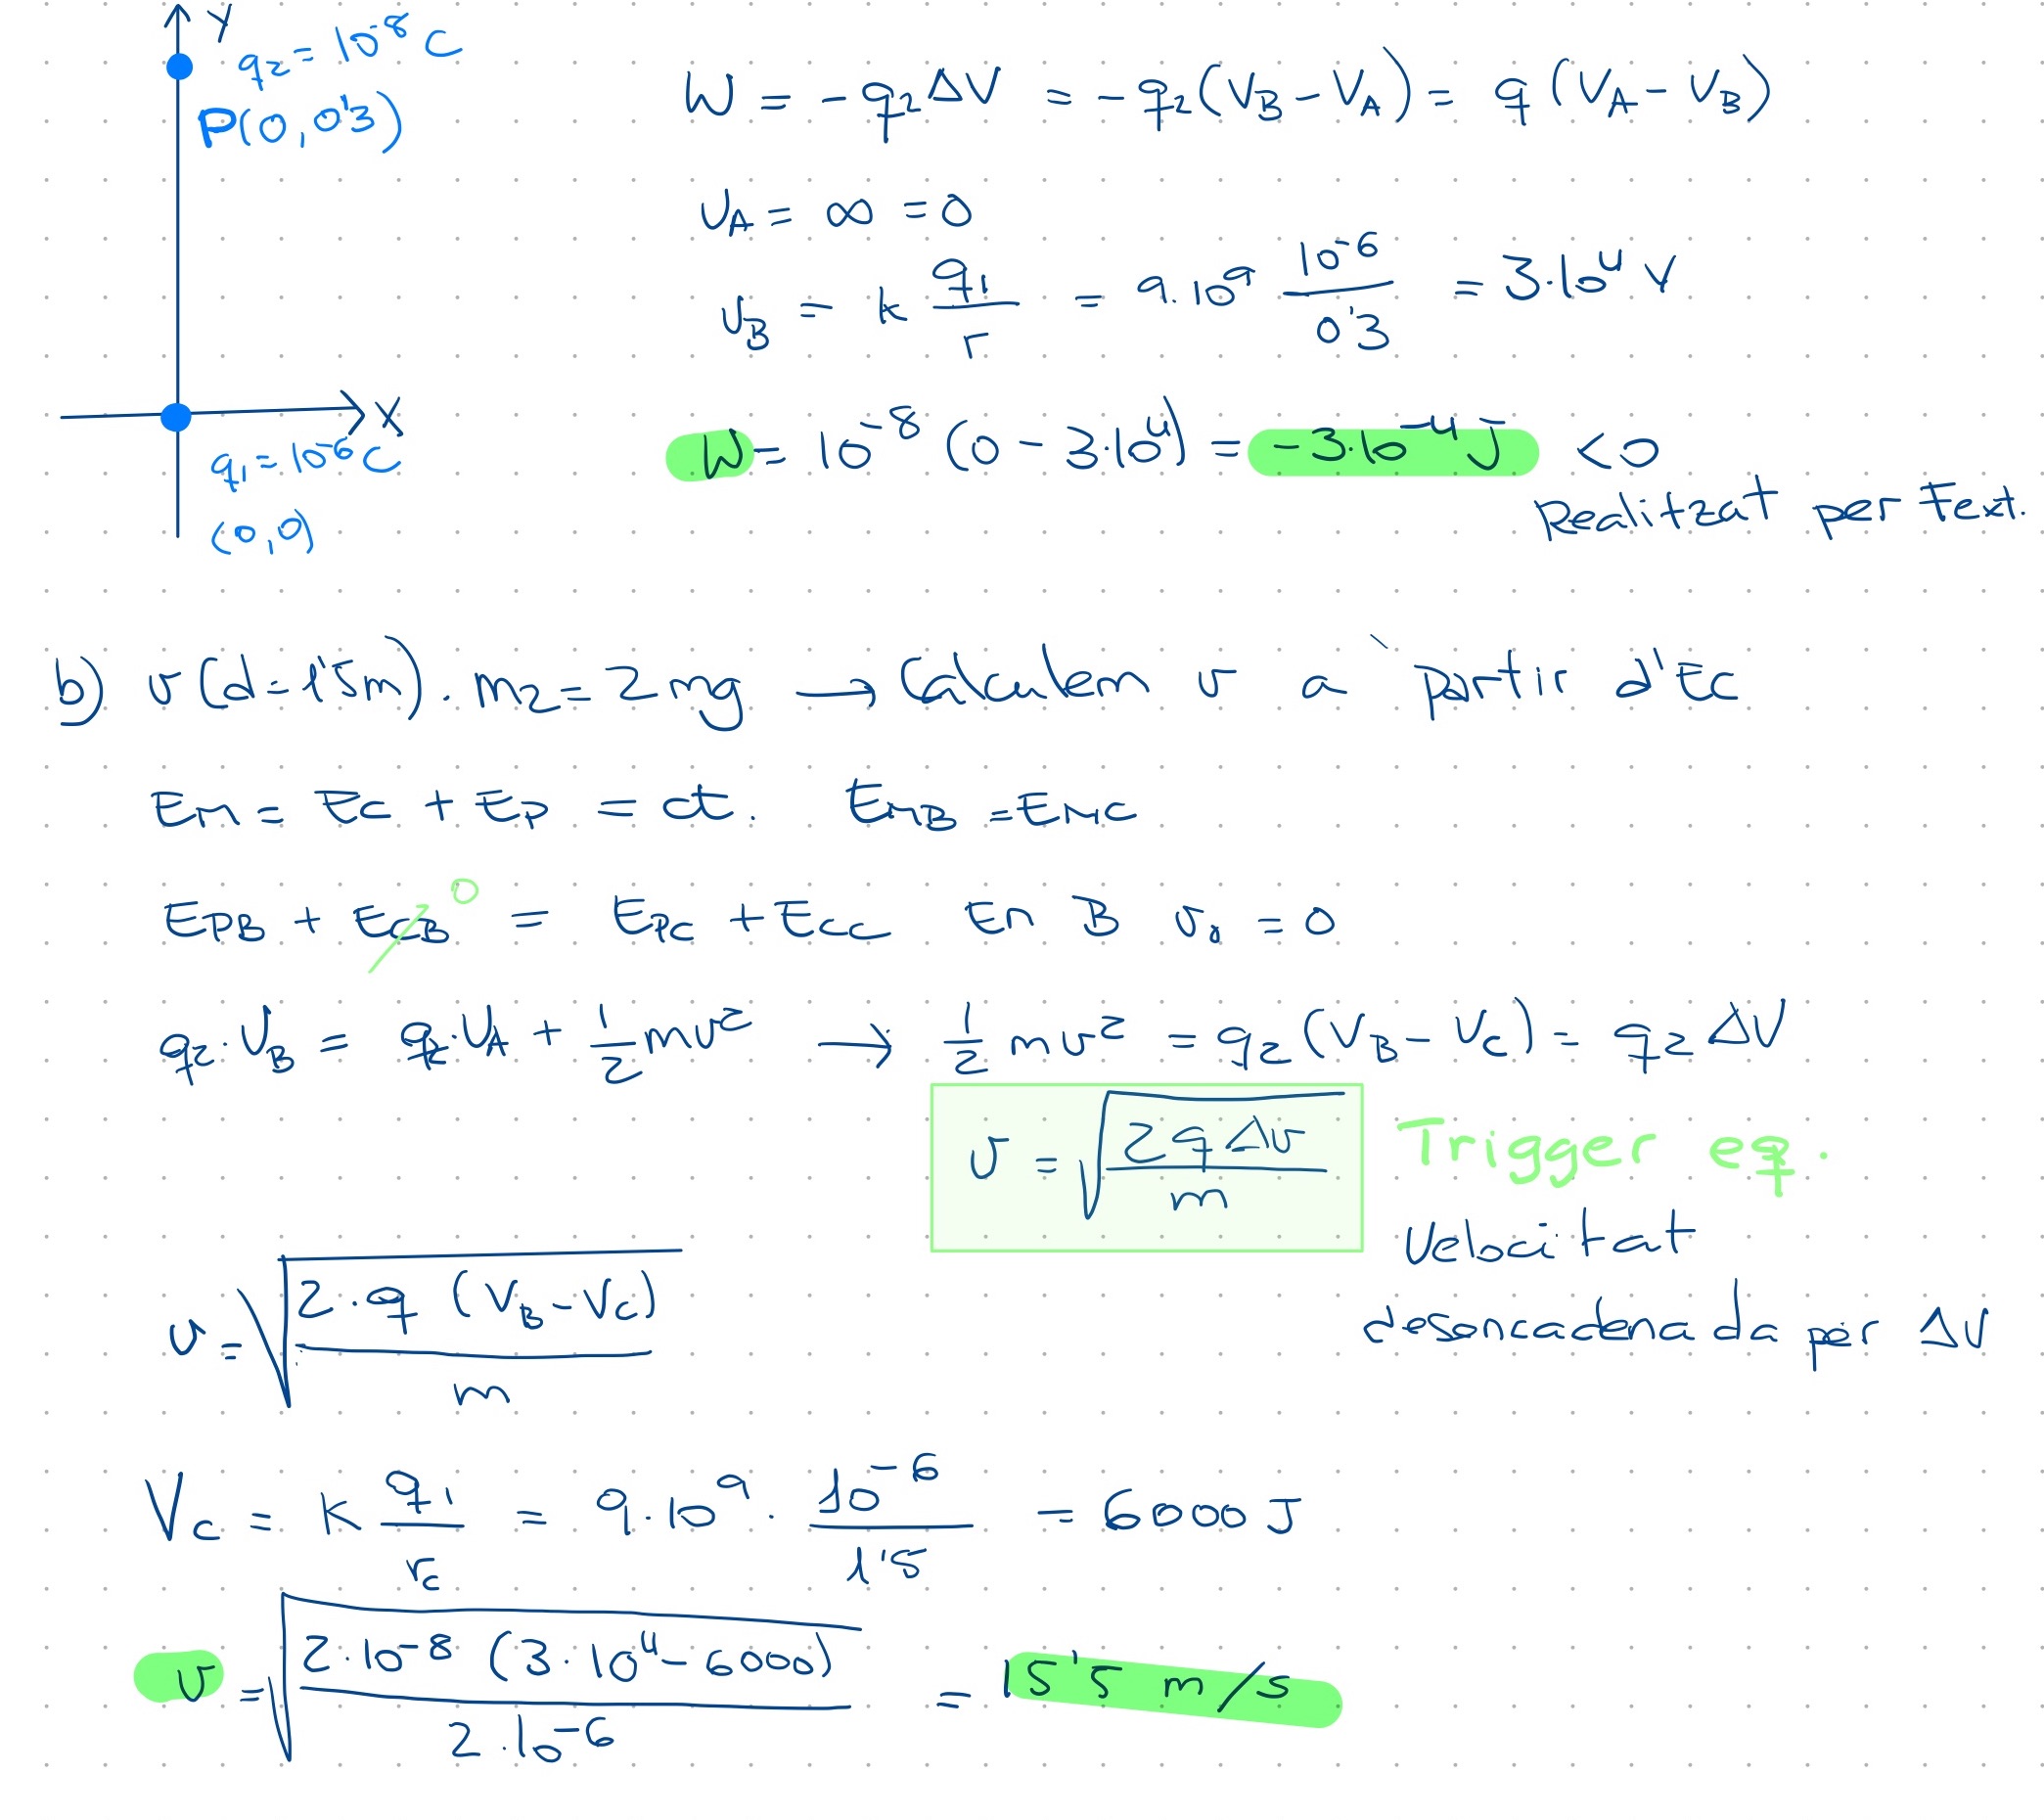 Y
q₂ = 10⁻⁸ C
P(0, 0'3)
X
q₁ = 10⁻⁶ C
(0,0)
W = - q₂ ΔV = - q₂ (V_B - V_A) = q (V_A - V_B)
V_A = ∞ = 0
V_B = k q₁/r = 9·10⁹ 10⁻⁶/0'3 = 3·10⁴ V
W = 10⁻⁸ (0 - 3·10⁴) = -3·10⁻⁴ J < 0
Realitzat per text.
b) v (d = 1'5m). m₂ = 2 mg → Calculem v a partir d'Ec
Em = Ec + Ep = ct. Em_B = Em_C
Ep_B + Ec_B⁰ = Ep_C + Ec_C En B v₀ = 0
q₂·V_B = q₂·V_A + 1/2 mv² → 1/2 mv² = q₂ (V_B - V_C) = q₂ ΔV
v = √(2qΔv/m) Trigger eq.
Velocitat
desencadenada per ΔV
v = √(2·q (V_B - V_C)/m)
V_C = k q₁/r_c = 9·10⁹ · 10⁻⁶/1'5 = 6000 J
v = √(2·10⁻⁸ (3·10⁴ - 6000)/2·10⁻⁶) = 15'5 m/s